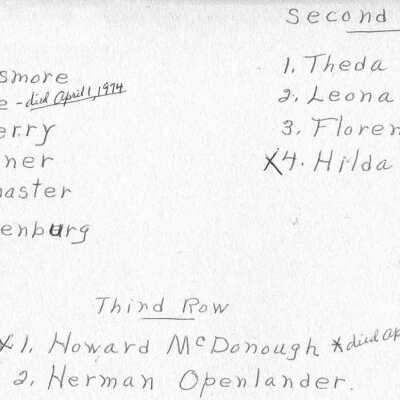 Second
smore
1. Theda
e - died April 1, 1974
2. Leona
erry
3. Floren
ner
X4. Hilda
aster
enburg
Third Row
X1. Howard McDonough *died Ap
2. Herman Openlander.